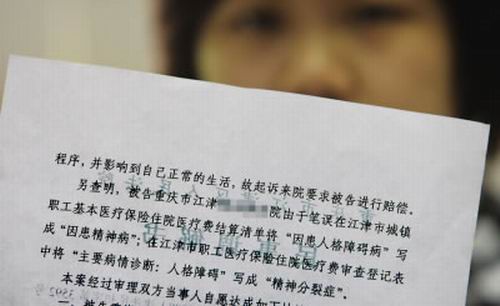 程序,并影响到自己正常的生活,故起诉来院要求被告进行赔偿。
另查明,被告重庆市江津 院由于笔误在江津市城镇
职工基本医疗保险住院医疗费结算清单将“因患人格障碍病”写
成“因患精神病”;在江津市职工医疗保险住院医疗费审查登记表
中将“主要病情诊断:人格障碍”写成“精神分裂症”。
本案经过审理双方当事人自愿达成如下